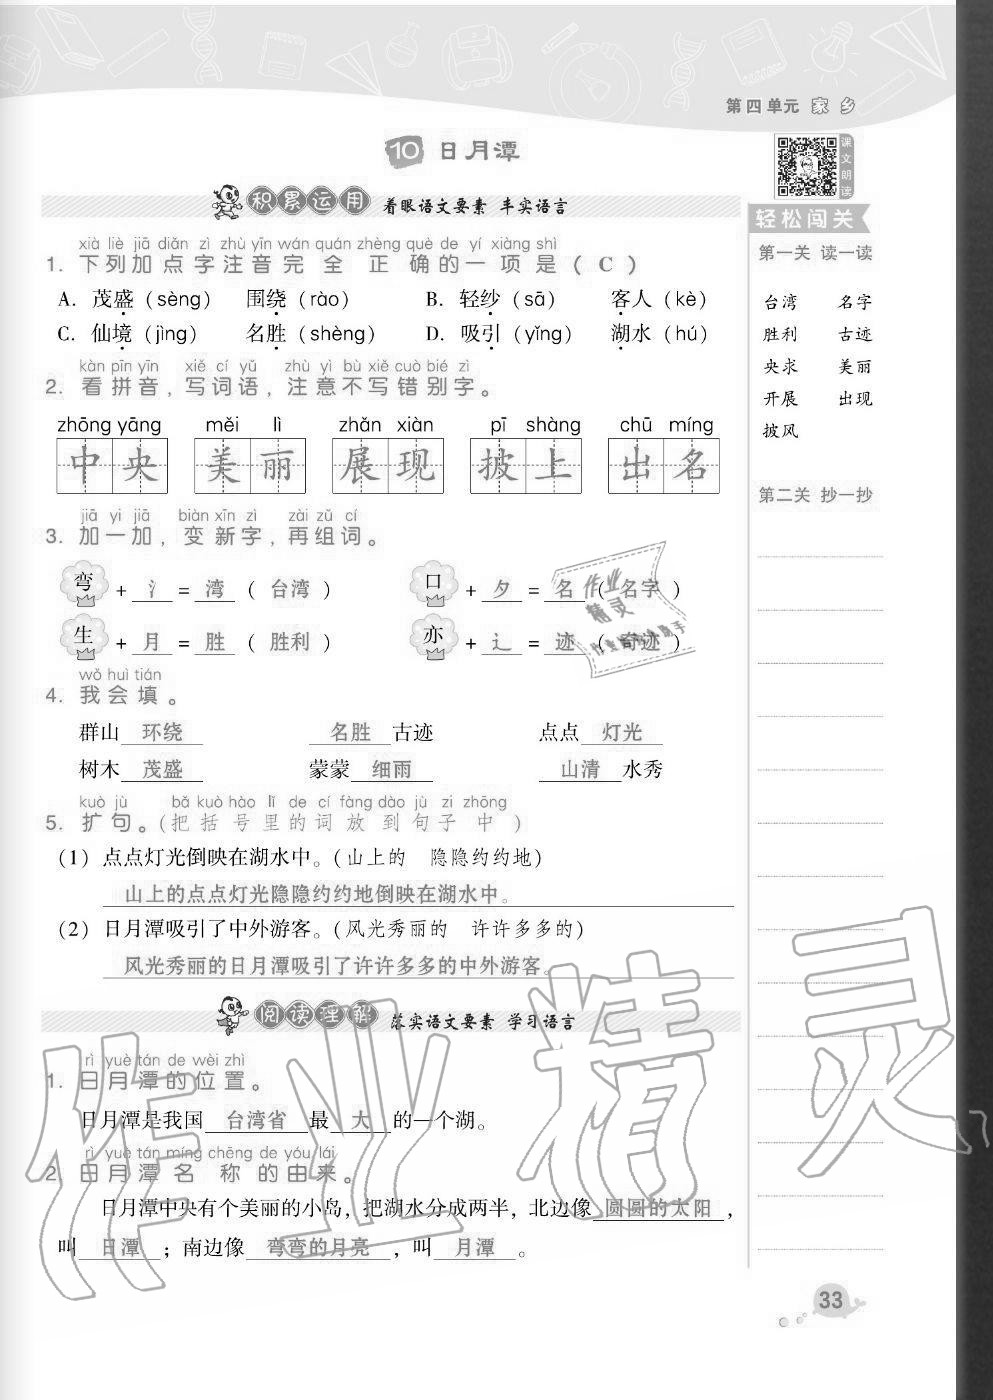 第四单元 家乡
10 日月潭
课文朗读
积累运用 着眼语文要素 丰实语言
xià liè jiā diǎn zì zhù yīn wán quán zhèng què de yí xiàng shì
1. 下列加点字注音完全正确的一项是（ C ）
A. 茂盛（sèng） 围绕（rào） B. 轻纱（sā） 客人（kè）
C. 仙境（jìng） 名胜（shèng） D. 吸引（yǐng） 湖水（hú）
kàn pīn yīn xiě cí yǔ zhù yì bù xiě cuò bié zì
2. 看拼音，写词语，注意不写错别字。
zhōng yāng měi lì zhǎn xiàn pī shàng chū míng
中央 美丽 展现 披上 出名
jiā yi jiā biàn xīn zì zài zǔ cí
3. 加一加，变新字，再组词。
弯 + 氵 = 湾（ 台湾 ） 口 + 夕 = 名（ 名字 ）
生 + 月 = 胜（ 胜利 ） 亦 + 辶 = 迹（ 奇迹 ）
wǒ huì tián
4. 我会填。
群山 环绕 名胜 古迹 点点 灯光
树木 茂盛 蒙蒙 细雨 山清 水秀
kuò jù bǎ kuò hào lǐ de cí fàng dào jù zi zhōng
5. 扩句。（把括号里的词放到句子中）
（1）点点灯光倒映在湖水中。（山上的 隐隐约约地）
山上的点点灯光隐隐约约地倒映在湖水中。
（2）日月潭吸引了中外游客。（风光秀丽的 许许多多的）
风光秀丽的日月潭吸引了许许多多的中外游客。
阅读理解 落实语文要素 学习语言
rì yuè tán de wèi zhì
1. 日月潭的位置。
日月潭是我国 台湾省 最 大 的一个湖。
rì yuè tán míng chēng de yóu lái
2. 日月潭名称的由来。
日月潭中央有个美丽的小岛，把湖水分成两半，北边像 圆圆的太阳 ，
叫 日潭 ；南边像 弯弯的月亮 ，叫 月潭 。
轻松闯关
第一关 读一读
台湾 名字
胜利 古迹
央求 美丽
开展 出现
披风
第二关 抄一抄
33
作业精灵
作业
精灵